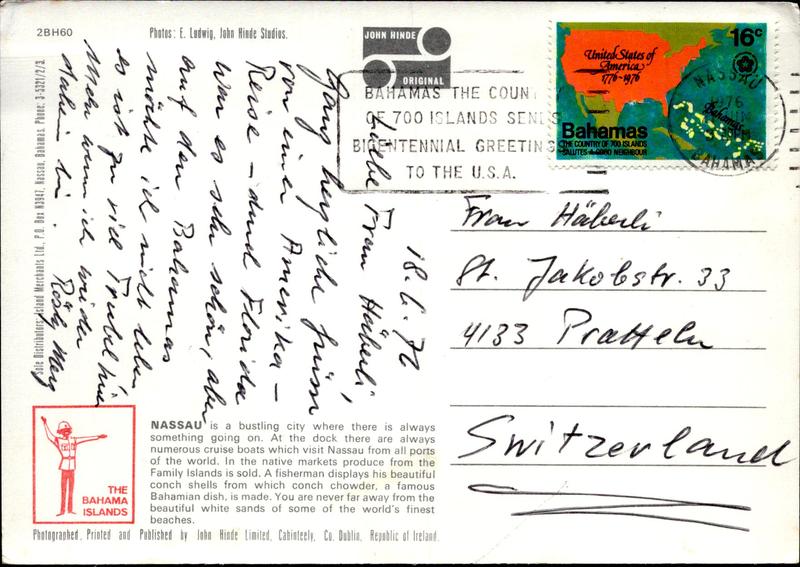 2BH60
Photos: E. Ludwig, John Hinde Studios.
JOHN HINDE
ORIGINAL
United States of
America
1776-1976
16c
Bahamas
Bahamas
THE COUNTRY OF 700 ISLANDS
SALUTES A GOOD NEIGHBOUR
BAHAMAS THE COUN
OF 700 ISLANDS SENDS
BICENTENNIAL GREETING
TO THE U.S.A.
NASSAU
1976
BAHAMAS
18.6.76
Liebe Frau Häberli,
Ganz herzliche Grüsse
von einer Amerika-
Reise – durch Florida
war es sehr schön, aber
auf den Bahamas
möchte ich nicht leben
es ist zu viel Trubel hier
Mehr wenn ich wieder
daheim bin.
Rösly
Frau Häberli
St. Jakobstr. 33
4133 Pratteln
Switzerland
Sole Distributors: Island Merchants Ltd., P.O. Box N3947, Nassau, Bahamas. Phone: 3-5321/2/3.
THE
BAHAMA
ISLANDS
NASSAU is a bustling city where there is always
something going on. At the dock there are always
numerous cruise boats which visit Nassau from all ports
of the world. In the native markets produce from the
Family Islands is sold. A fisherman displays his beautiful
conch shells from which conch chowder, a famous
Bahamian dish, is made. You are never far away from the
beautiful white sands of some of the world's finest
beaches.
Photographed, Printed and Published by John Hinde Limited, Cabinteely, Co. Dublin, Republic of Ireland.